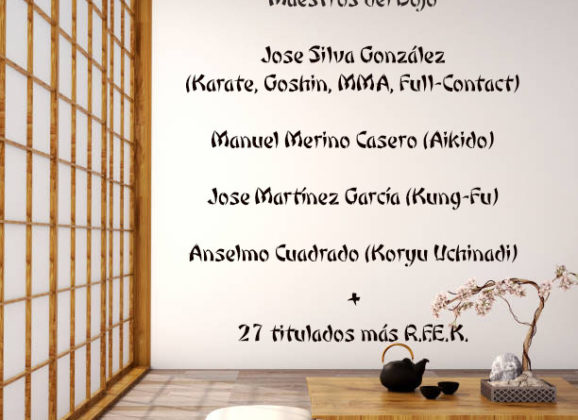 Maestros del Dojo
Jose Silva González
(Karate, Goshin, MMA, Full-Contact)
Manuel Merino Casero (Aikido)
Jose Martínez García (Kung-Fu)
Anselmo Cuadrado (Koryu Uchinadi)
+
27 titulados más R.F.E.K.